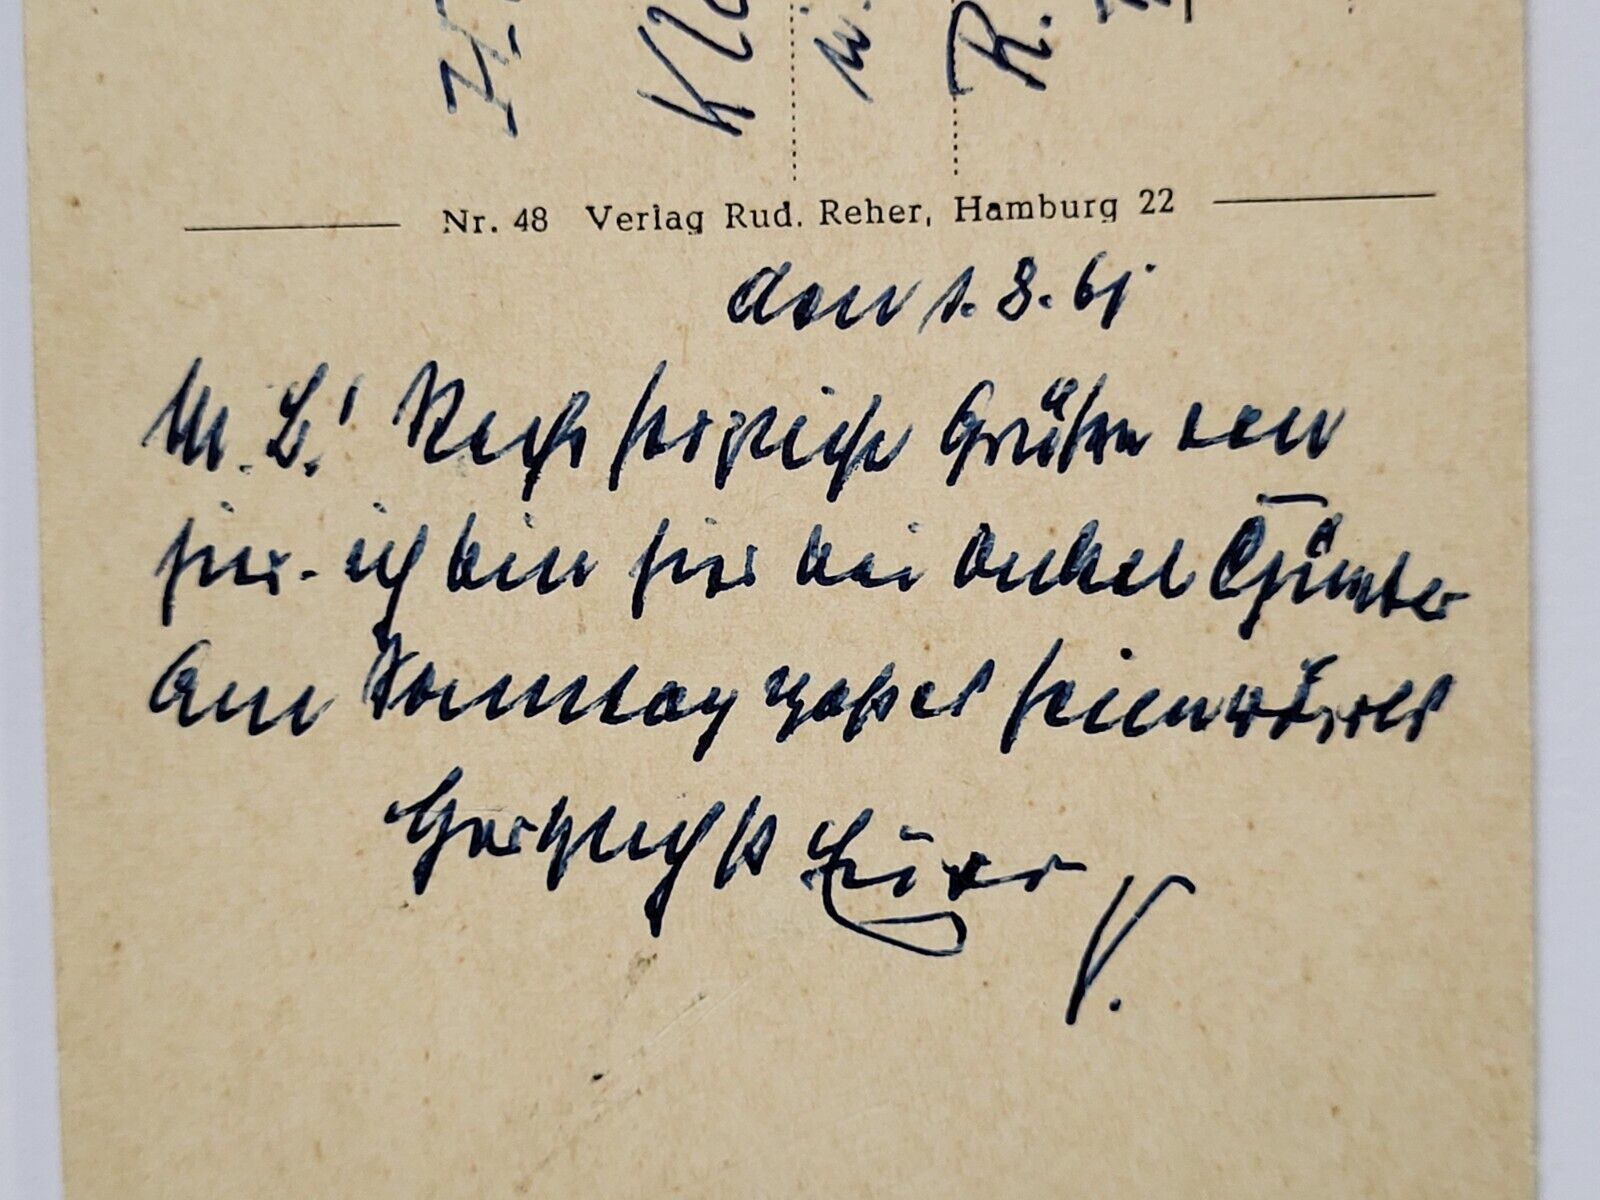 Kle
u.
R.
Nr. 48 Verlag Rud. Reher, Hamburg 22
den 1.8.61
M. L.! Recht herzliche Grüße von
hier - ich bin hier bei Onkel Günter
Am Sonntag geht es heimwärts
Herzlichst Euer
V.